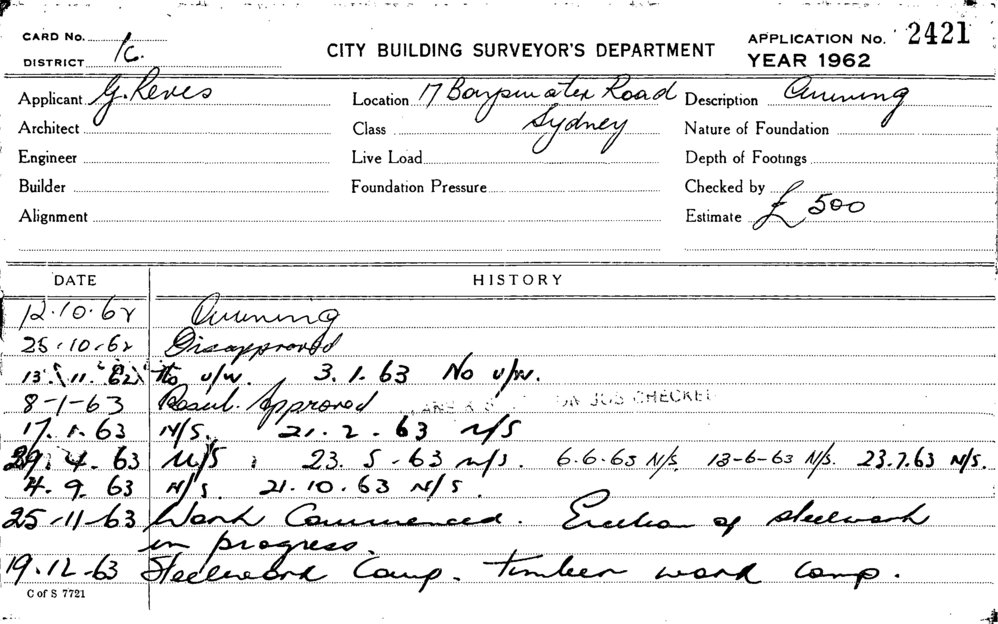 CARD No.
DISTRICT K.
CITY BUILDING SURVEYOR'S DEPARTMENT
APPLICATION No. 2421
YEAR 1962
Applicant G. Reves
Location 17 Bayswater Road
Sydney
Description Awning
Architect
Class
Nature of Foundation
Engineer
Live Load
Depth of Footings
Builder
Foundation Pressure
Checked by
Alignment
Estimate £ 500
DATE HISTORY
12.10.62 Awning
25.10.62 Disapproved
13.11.62 No u/w. 3.1.63 No u/w.
8-1-63 Resub. Approved JOB CHECKED
17.1.63 N/S. 21.2.63 N/S
29.4.63 N/S. 23.5.63 N/S. 6.6.63 N/S. 13-6-63 N/S. 23.7.63 N/S.
4.9.63 N/S. 21.10.63 N/S.
25-11-63 Work Commenced. Erection of steelwork
in progress.
19.12-63 Steelwork Comp. timber work comp.
C of S 7721